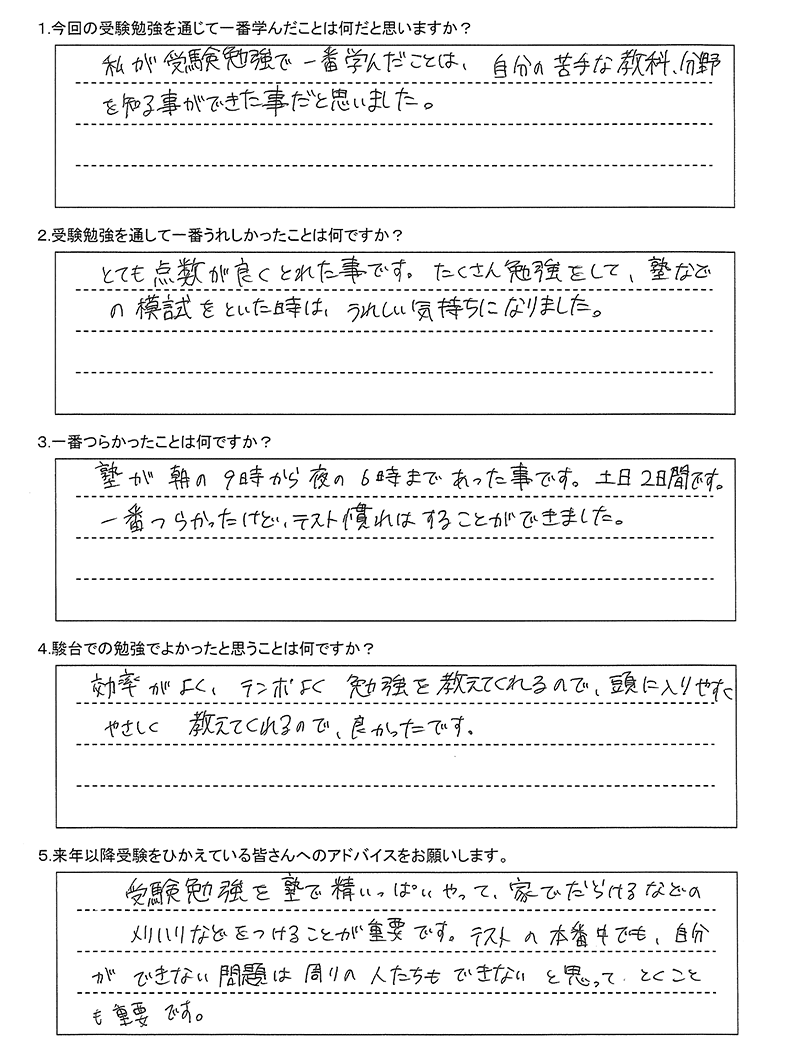 1.今回の受験勉強を通じて一番学んだことは何だと思いますか？
私が受験勉強で一番学んだことは、自分の苦手な教科、分野
を知る事ができた事だと思いました。
2.受験勉強を通して一番うれしかったことは何ですか？
とても点数が良くとれた事です。たくさん勉強をして、塾など
の模試をといた時は、うれしい気持ちになりました。
3.一番つらかったことは何ですか？
塾が朝の9時から夜の6時まであった事です。土日2日間です。
一番つらかったけど、テスト慣れはすることができました。
4.駿台での勉強でよかったと思うことは何ですか？
効率がよく、テンポよく勉強を教えてくれるので、頭に入りやすく
やさしく教えてくれるので、良かったです。
5.来年以降受験をひかえている皆さんへのアドバイスをお願いします。
受験勉強を塾で精いっぱいやって、家でだらけるなどの
メリハリなどをつけることが重要です。テストの本番中でも、自分
ができない問題は周りの人たちもできないと思って、とくこと
も重要です。